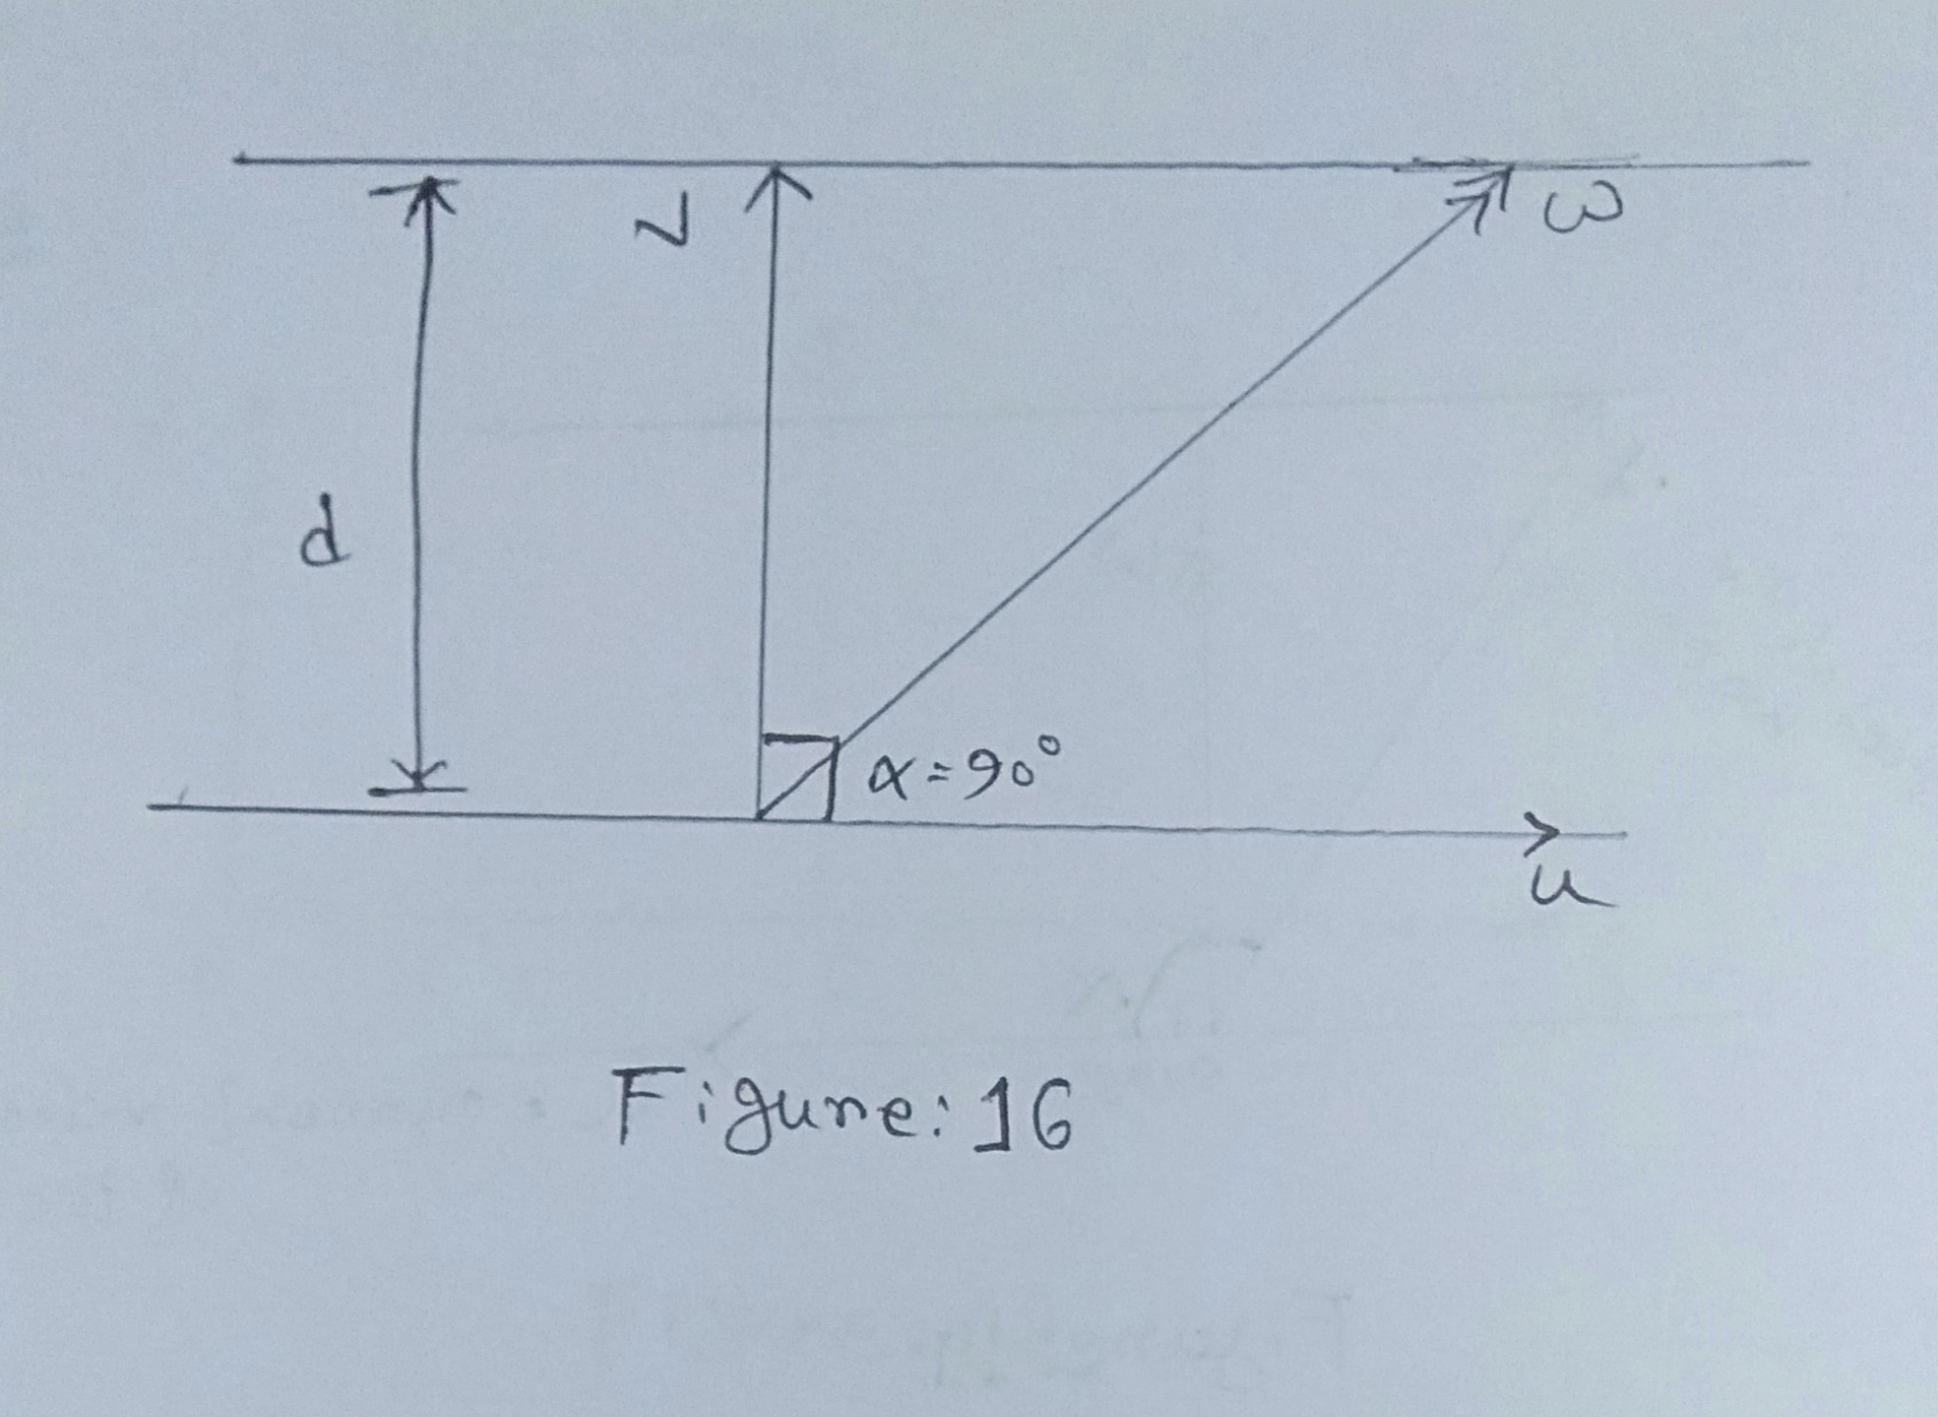 V
ω
d
α=90°
u
Figure: 16